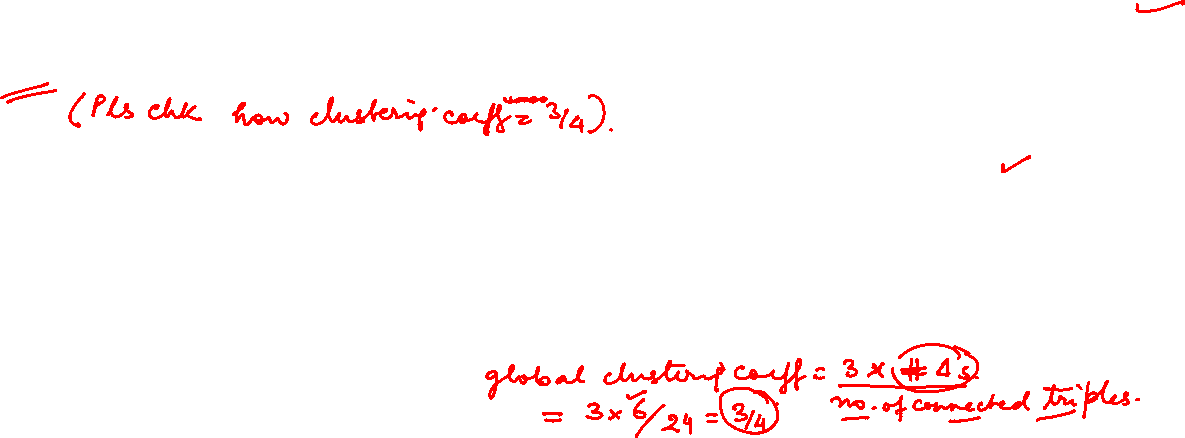 (Pls chk how clustering coeff = 3/4).
global clustering coeff = 3 × # Δ's / no. of connected triples.
= 3×6/24 = 3/4